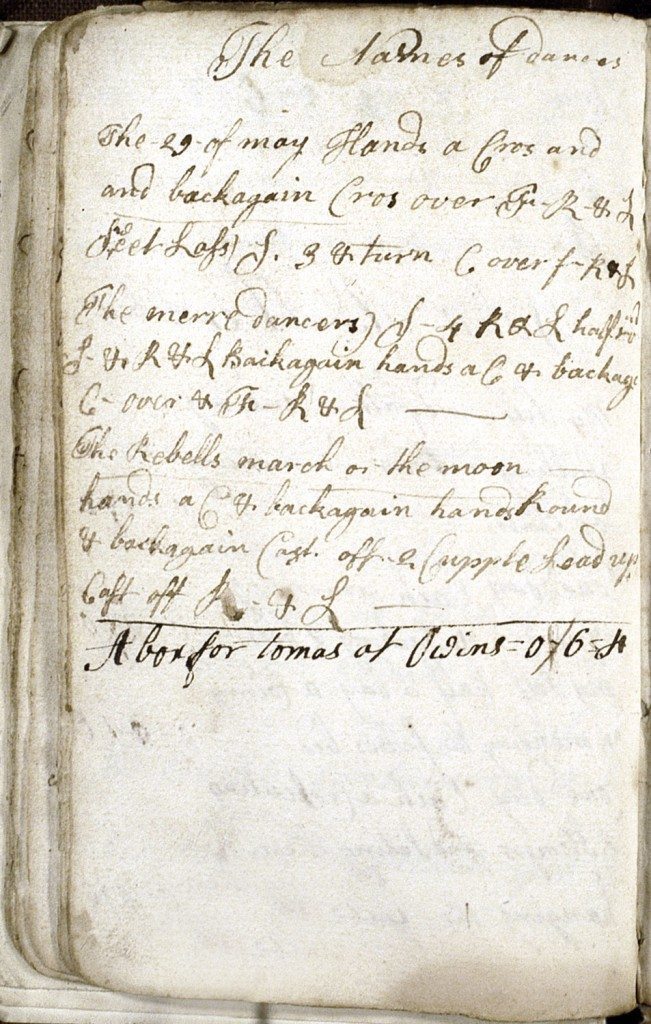 The Names of dances
The 29 of may Hands a Cros and
and backagain Cros over F - R & L
S. 3 & turn C over f - R & L
The merre dancers) S - 4 R & L half
F - & R & L Backagain hands a C & backag
C - over & F - R & L
The Rebells march or the moon
hands a C & backagain hands Round
& backagain Cast off 2 Cupple Lead up
Cast off R - & L
A box for tomas at = 0 = 6 = 4